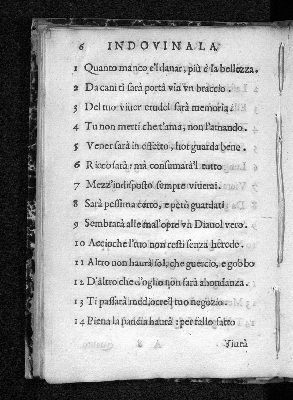 6 INDOVINALA
1 Quanto manco e'l danar, più è la bellezza.
2 Da cani ti sarà portà via vn braccio.
3 Del tuo viuer crudel sarà memoria.
4 Tu non merti che t'ama, non l'amando.
5 Vener sarà in effetto, hor guarda bene.
6 Ricco sarà: mà consumarà'l tutto
7 Mezz'indisposto sempre viuerai.
8 Sarà pessima certo, e però guardati
9 Sembrarà alle mal'opre vn Diauol vero.
10 Accioche l'tuo non resti senza herede.
11 Altro non haurà sol, che guercio, e gobbo
12 D'altro che d'oglio non sarà abondanza.
13 Ti passarà mediocre'l tuo negozio.
14 Piena la pancia haurà: per fallo fatto
A 8 Viurà